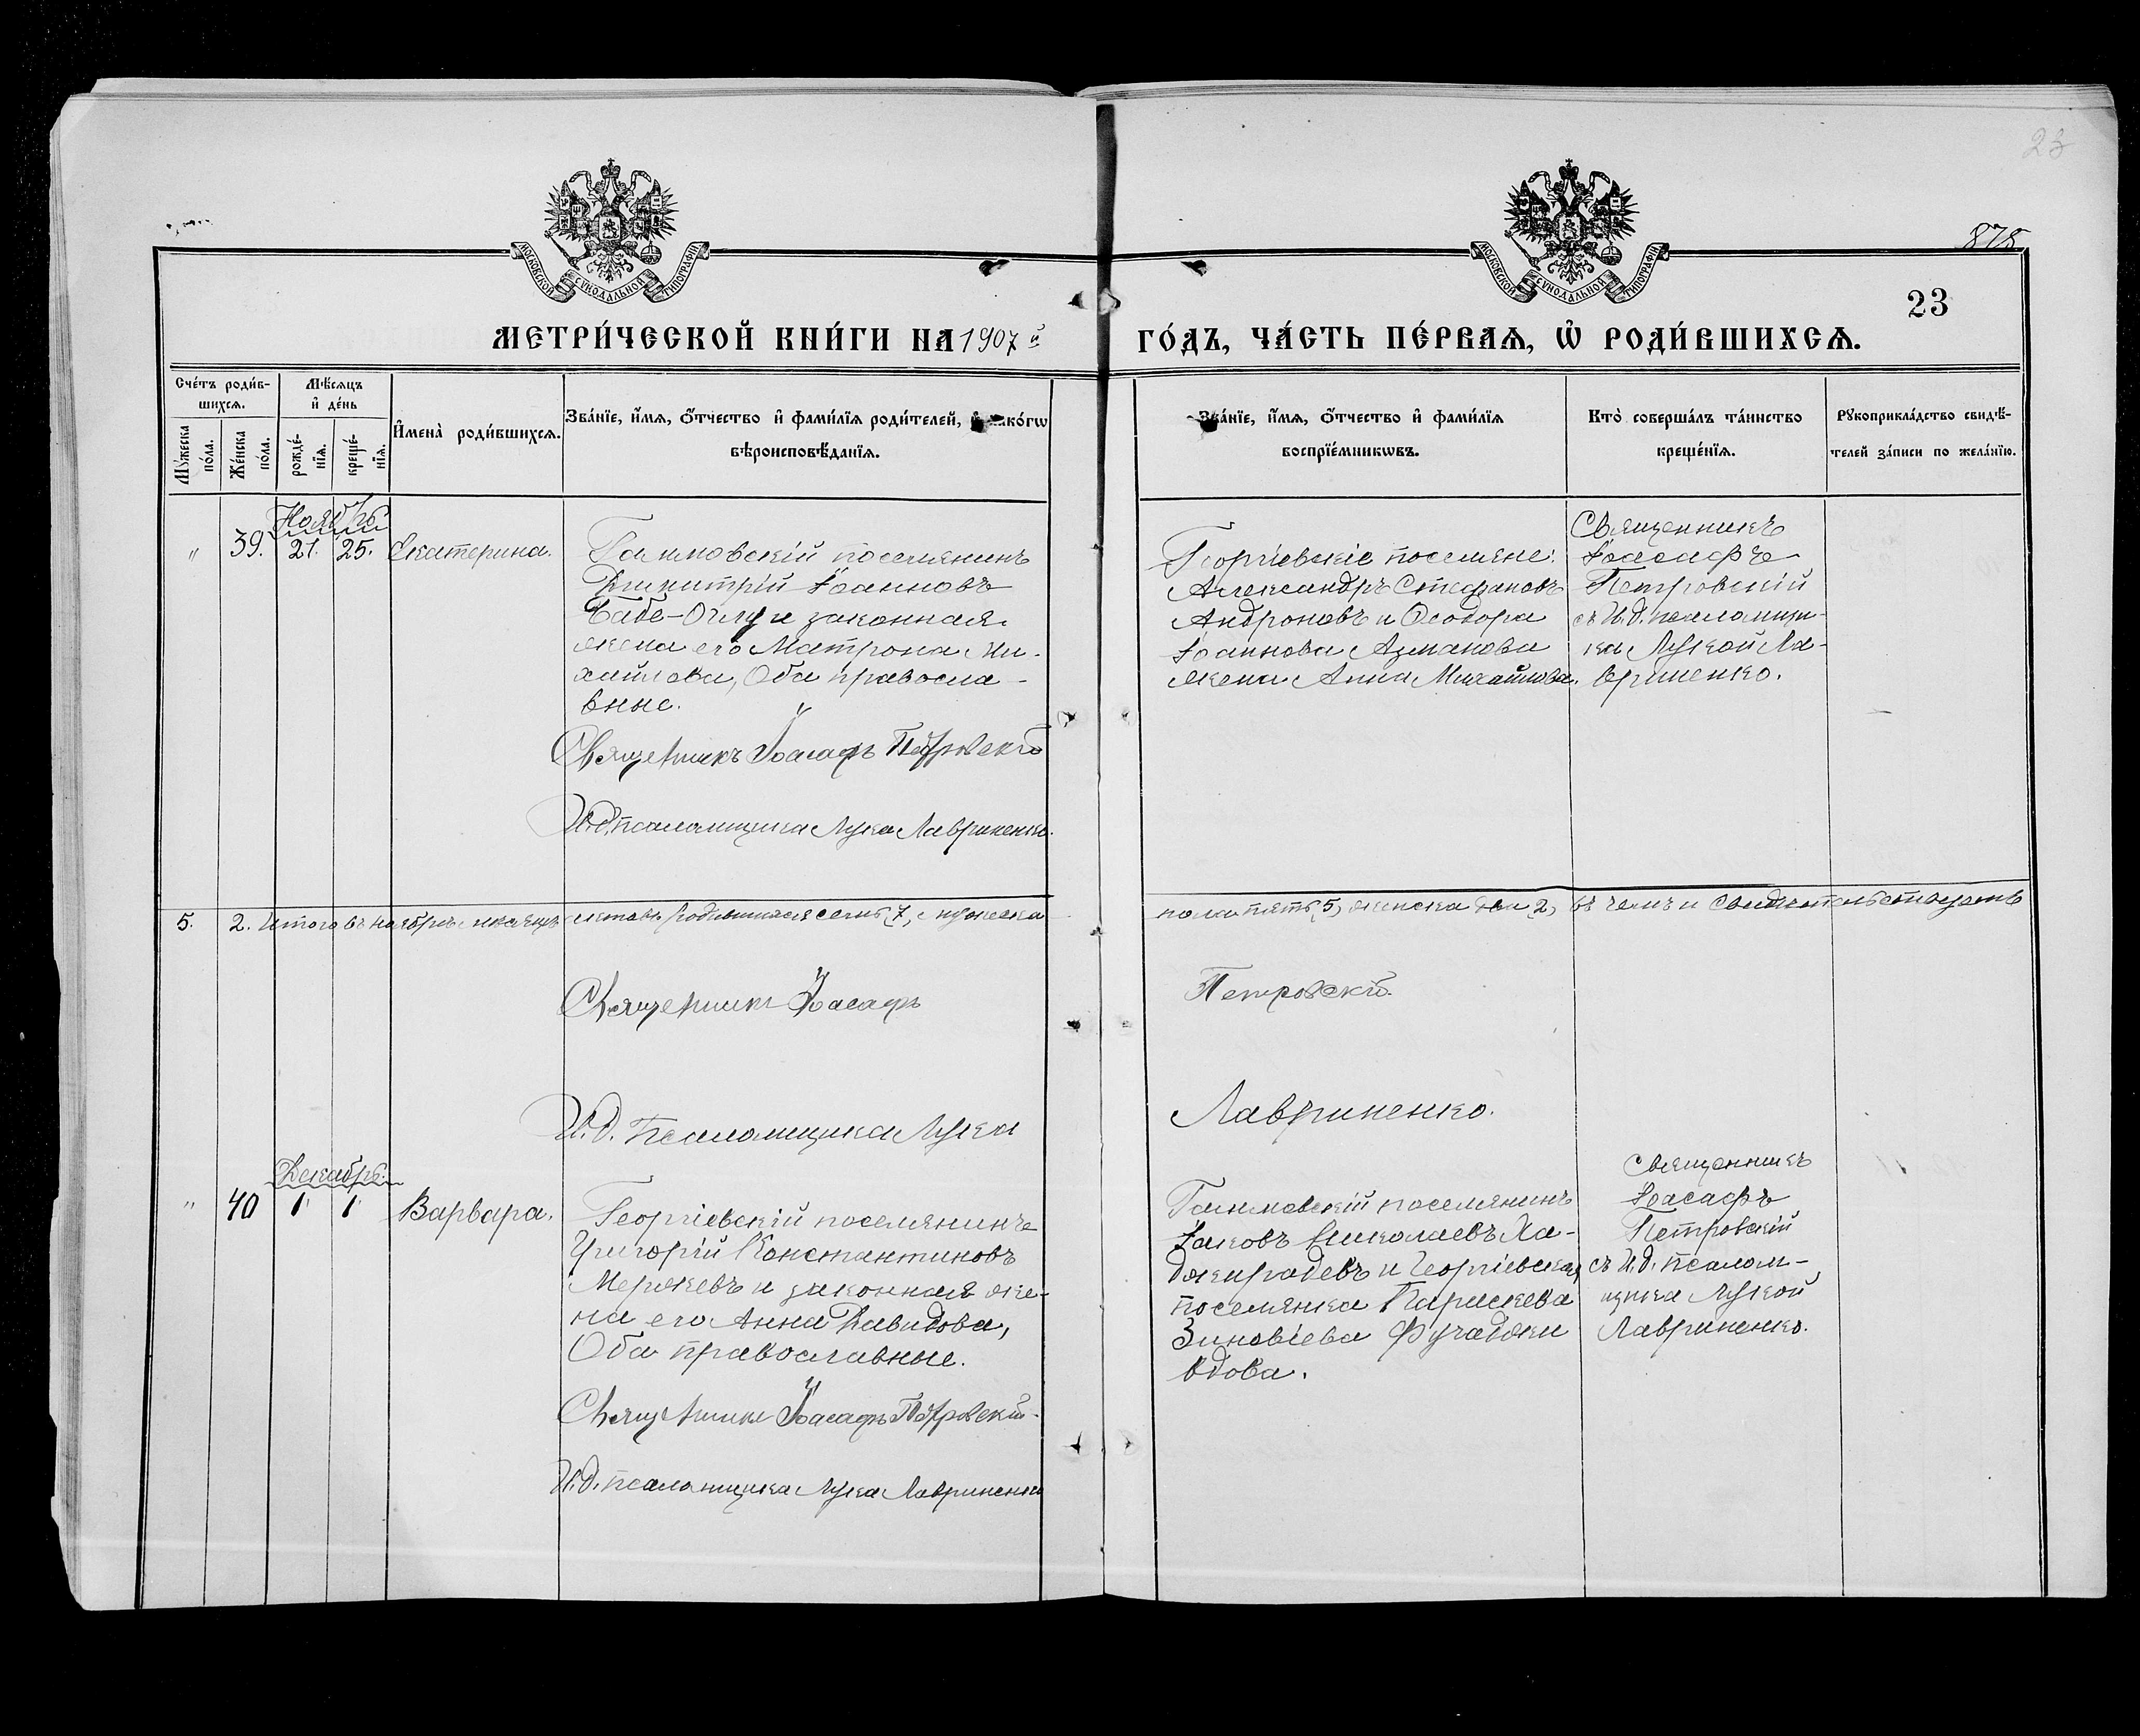 23
МОСКОВСКОЙ СУНОДАЛЬНОЙ ТИПОГРАФІИ
МОСКОВСКОЙ СУНОДАЛЬНОЙ ТИПОГРАФІИ
878
23
МЕТРИ́ЧЕСКОЙ КНИ́ГИ НА 1907 й
ГО́ДЪ, ЧА́СТЬ ПЕ́РВАѦ, Ѡ҆ РОДИ́ВШИХСѦ.
Сче́тъ роди́в-
шихсѧ.
Мꙋ́жеска
по́ла.
Же́нска
по́ла.
Мѣ́сѧцъ
и҆ де́нь
рожде́-
нїѧ.
креще́-
нїѧ.
И҆мена̀ роди́вшихсѧ.
Зва́нїе, и҆́мѧ, ѻ҆́тчество и҆ фами́лїѧ роди́телей, и҆ како́гѡ
вѣроисповѣ́данїѧ.
Зва́нїе, и҆́мѧ, ѻ҆́тчество и҆ фами́лїѧ
воспрїе́мникѡвъ.
Кто̀ соверша́лъ та́инство
креще́нїѧ.
Рꙋкоприкла́дство свидѣ́-
телей за́писи по жела́нїю.
Ноябрь
" 39. 21. 25. Екатерина.
Гаммовскій поселянинъ
Димитрій Іоанновъ
Бабе-Оглу и законная
жена его Матрона Ми-
хайлова, Оба правосла-
вные.
Священникъ Іоасафъ Петровскій
И.д. псаломщика Лука Лавриненко.
Георгіевскіе поселяне:
Александръ Стефановъ
Андроновъ и Ѳеодора
Іоаннова Азманова
жена Анна Михайлова.
Священникъ
Іоасафъ
Петровскій
съ И.д. псаломщи-
ка Лукой Ла-
вриненко.
5. 2. Итого въ ноябрѣ мѣсяцѣ родившихся семь, 7, мужеска
пола пять, 5, женска два, 2, въ чемъ и свидѣтельствуютъ
Священникъ Іоасафъ
Петровскій.
И.д. Псаломщика Лука
Лавриненко.
Декабрь.
" 40 1 1 Варвара.
Георгіевскій поселянинъ
Григорій Константиновъ
Мержевъ и законная же-
на его Анна Давидова,
Оба православные.
Священникъ Іоасафъ Петровскій.
И.д. псаломщика Лука Лавриненко
Гаммовскій поселянинъ
Іаковъ Николаевъ Ха-
джирадевъ и Георгіевская
поселянка Параскева
Зиновіева Фучаджи
вдова.
Священникъ
Іоасафъ
Петровскій
съ И.д. псалом-
щика Лукой
Лавриненко.